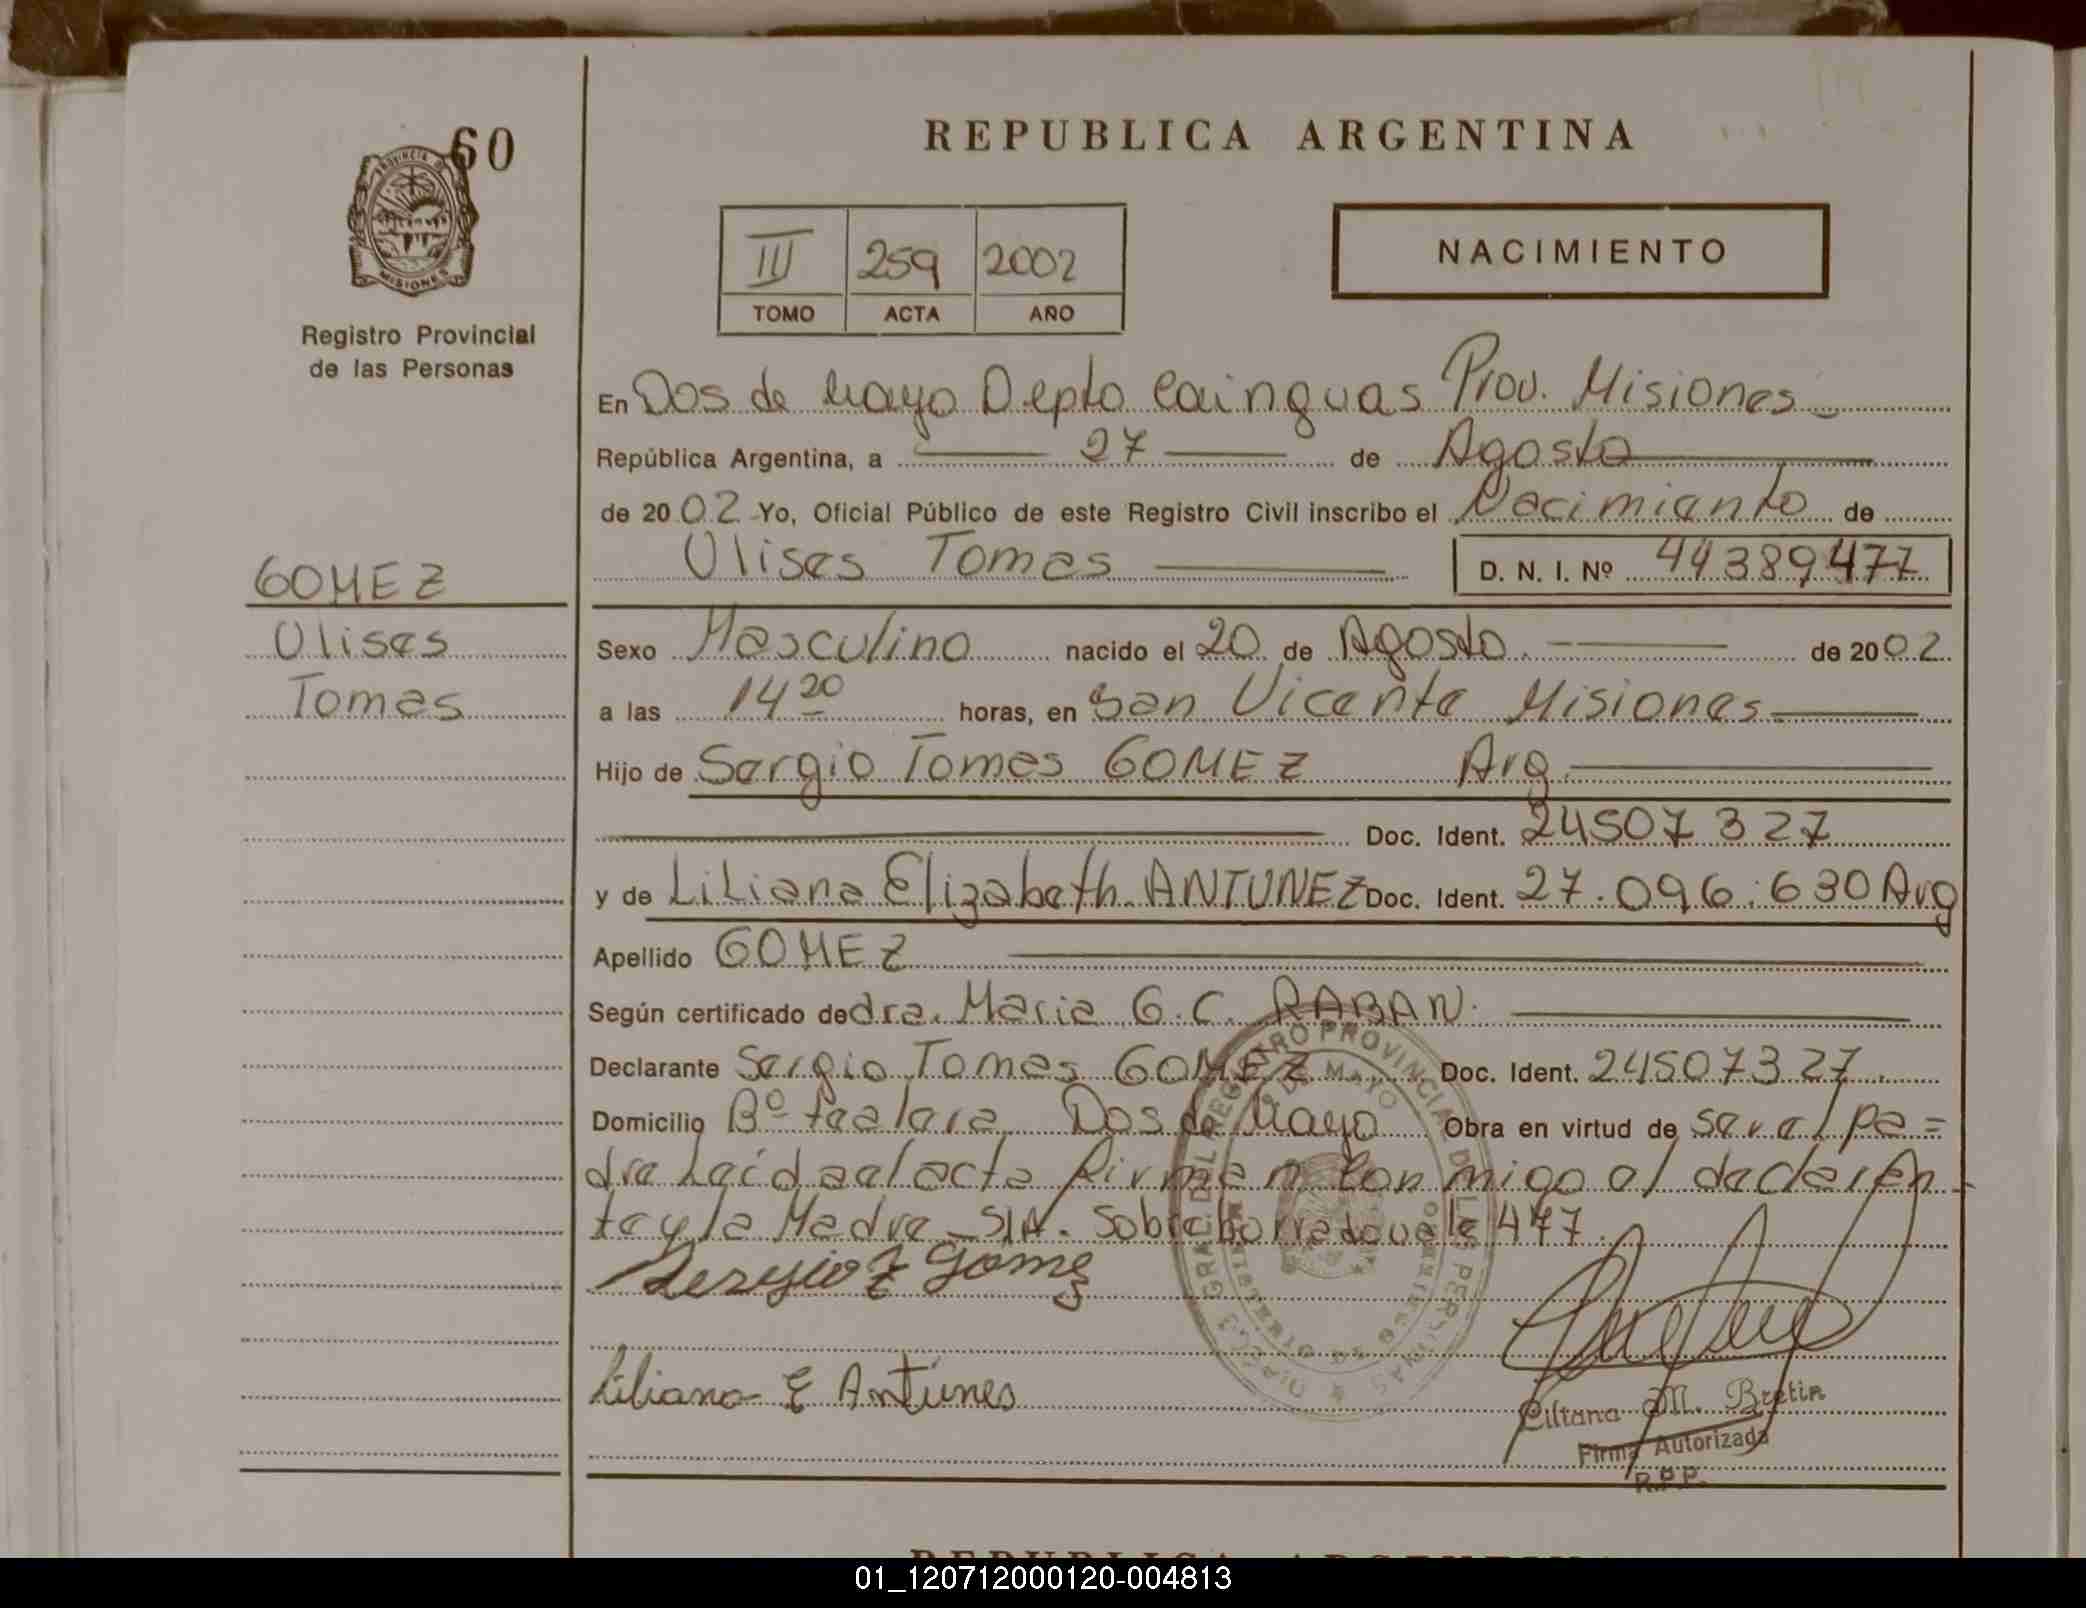 60
REPUBLICA ARGENTINA
PROVINCIA D
MISIONES
Registro Provincial
de las Personas
III 259 2002
TOMO ACTA AÑO
NACIMIENTO
En Dos de Mayo Depto Cainguas Prov. Misiones
República Argentina, a 27 de Agosto
de 2002 Yo, Oficial Público de este Registro Civil inscribo el Nacimiento de
Ulises Tomas D. N. I. Nº 44389477
GOMEZ
Ulises
Tomas
Sexo Masculino nacido el 20 de Agosto. de 2002
a las 14 20 horas, en San Vicente Misiones
Hijo de Sergio Tomas GOMEZ Arg
Doc. Ident. 24507327
y de Liliana Elizabeth ANTUNEZ Doc. Ident. 27.096.630 Arg
Apellido GOMEZ
Según certificado de dra. Maria G. C. RABAN.
Declarante Sergio Tomas GOMEZ Doc. Ident. 24507327.
Domicilio Bº Dos de Mayo Obra en virtud de ser el pa=
dre Leída el acta firman conmigo el declaran-
te y la Madre S/A. Sobreborrado vale 477.
Sergio T Gomez
Liliana E Antunes
M. Bretin
Firma Autorizada
R.P.P.
REPUBLICA ARGENTINA
01_120712000120-004813